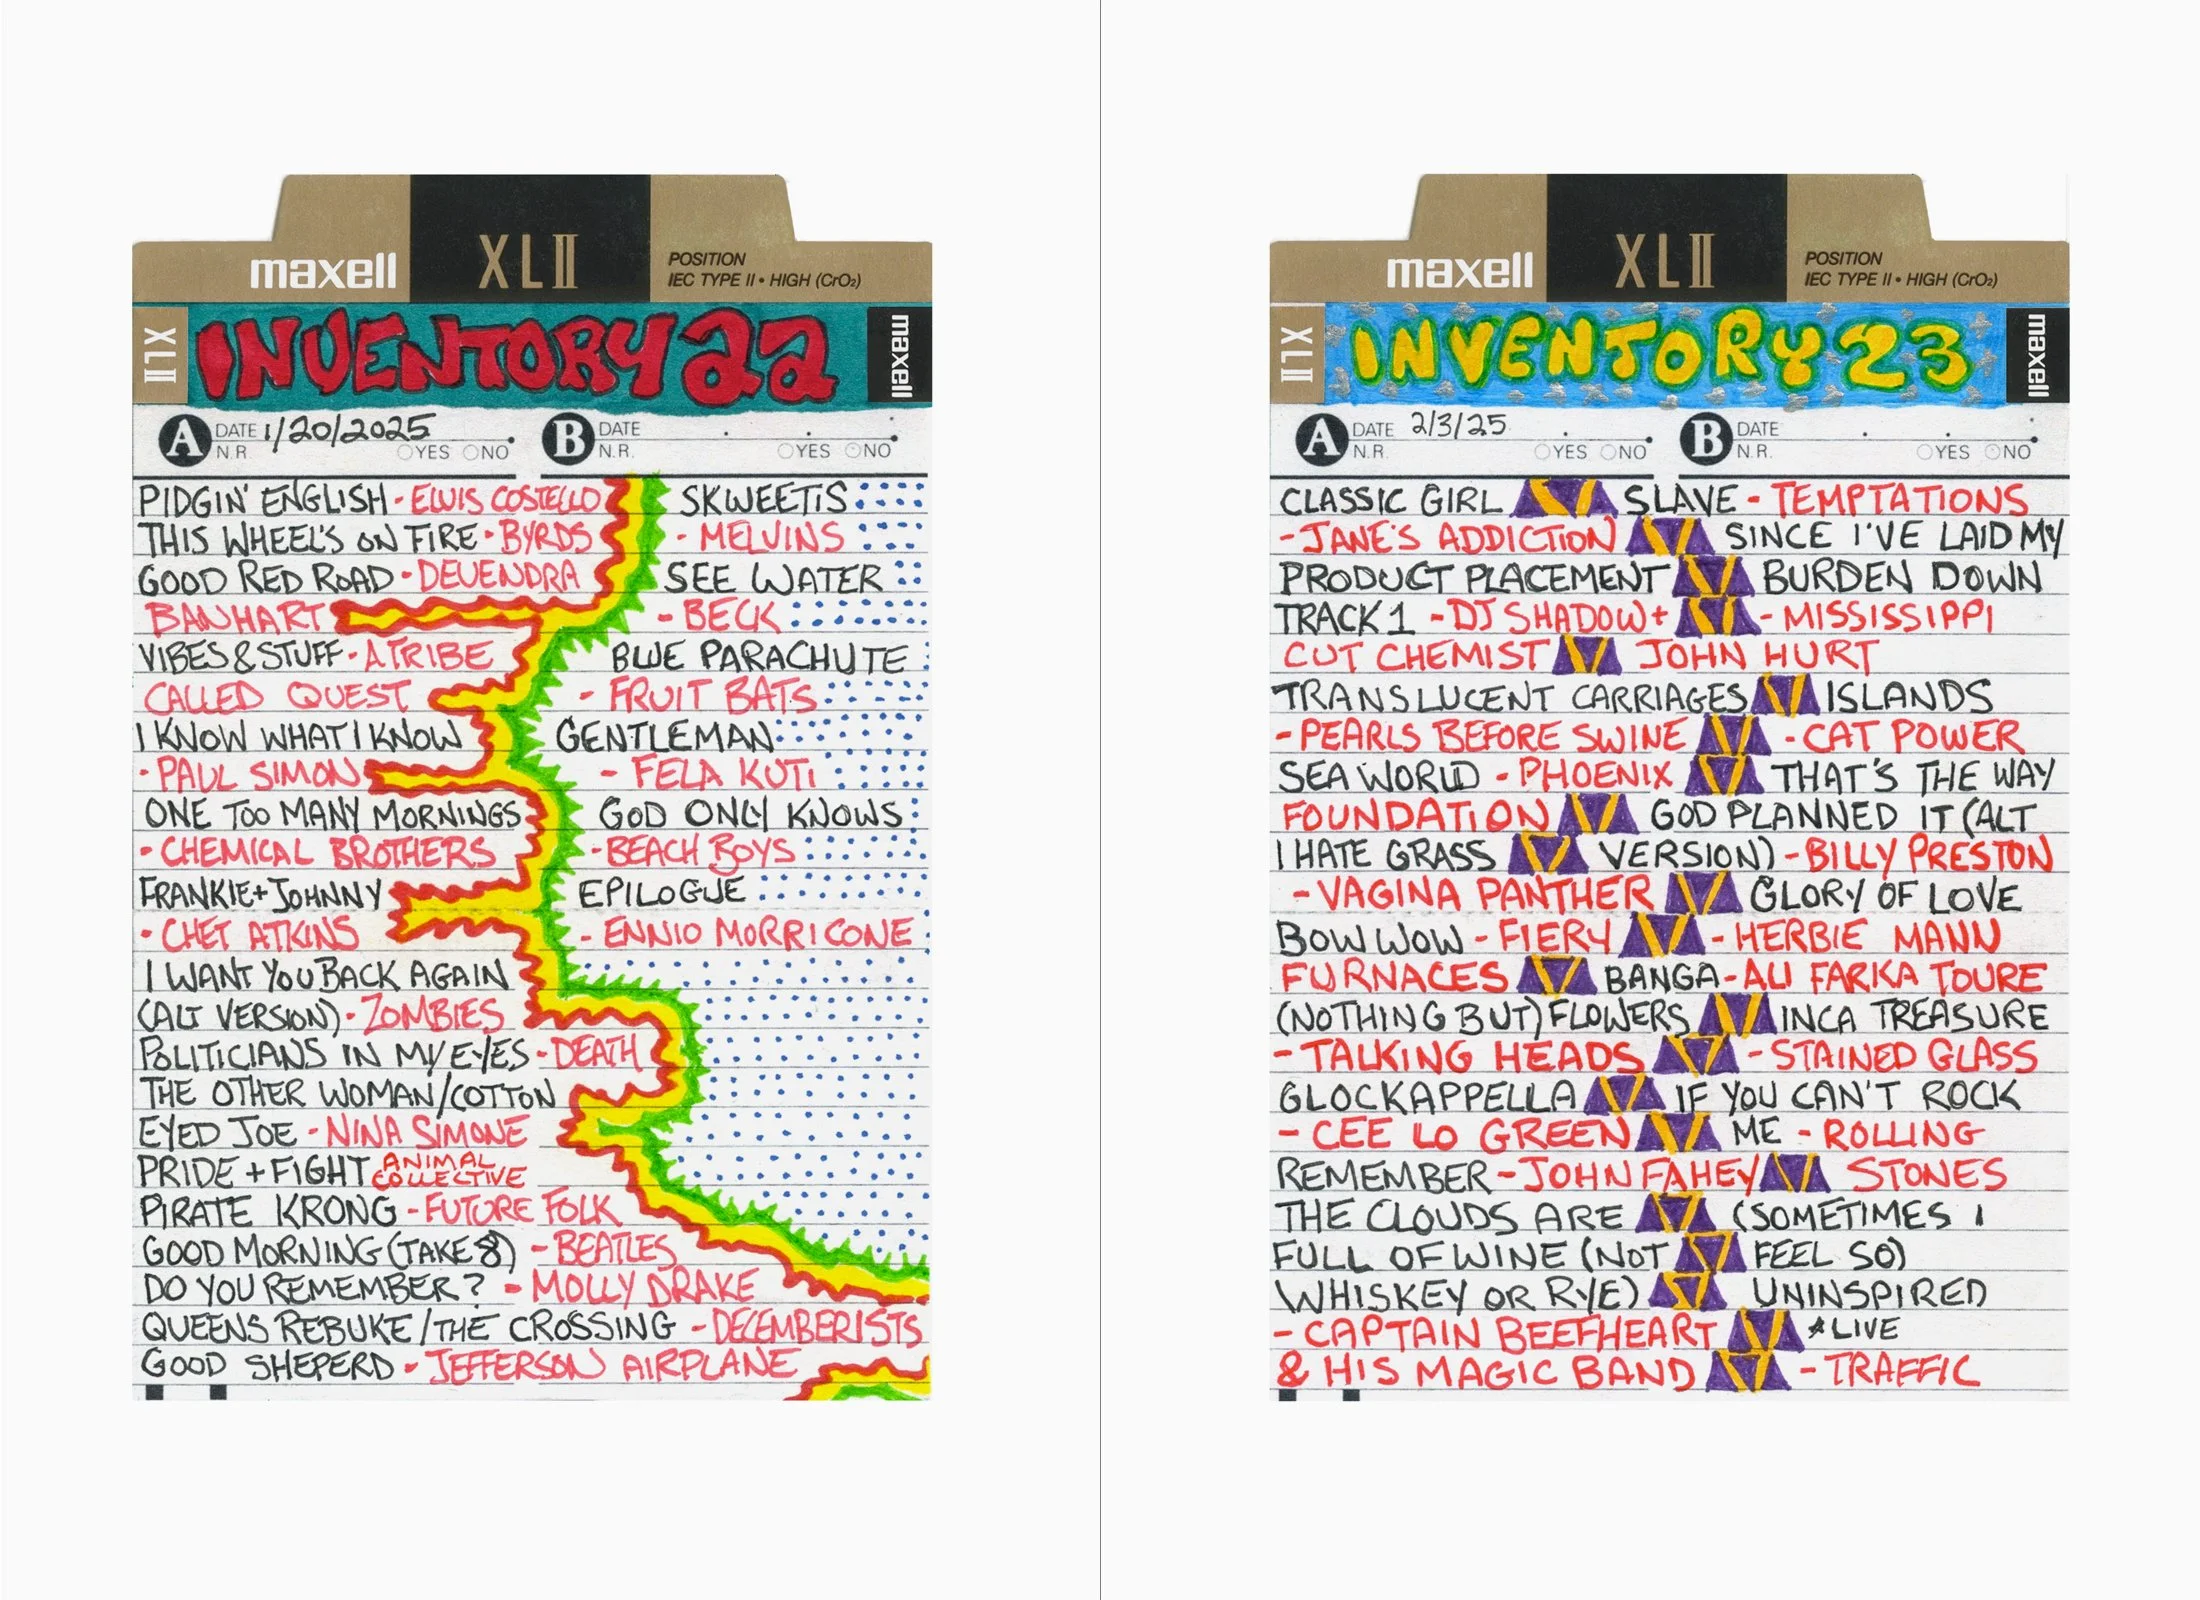 maxell XLII POSITION
IEC TYPE II • HIGH (CrO₂)
XLII INVENTORY 22 maxell
A DATE 1/20/2025 B DATE
N.R. YES NO N.R. YES NO
PIDGIN' ENGLISH - ELVIS COSTELLO
THIS WHEEL'S ON FIRE - BYRDS
GOOD RED ROAD - DEVENDRA
BANHART
VIBES & STUFF - A TRIBE
CALLED QUEST
I KNOW WHAT I KNOW
- PAUL SIMON
ONE TOO MANY MORNINGS
- CHEMICAL BROTHERS
FRANKIE + JOHNNY
- CHET ATKINS
I WANT YOU BACK AGAIN
(ALT VERSION) - ZOMBIES
POLITICIANS IN MY EYES - DEATH
THE OTHER WOMAN/COTTON
EYED JOE - NINA SIMONE
PRIDE + FIGHT ANIMAL COLLECTIVE
PIRATE KRONG - FUTURE FOLK
GOOD MORNING (TAKE 8) - BEATLES
DO YOU REMEMBER? - MOLLY DRAKE
QUEENS REBUKE/THE CROSSING - DECEMBERISTS
GOOD SHEPERD - JEFFERSON AIRPLANE
SKWEETIS
- MELVINS
SEE WATER
- BECK
BLUE PARACHUTE
- FRUIT BATS
GENTLEMAN
- FELA KUTI
GOD ONLY KNOWS
- BEACH BOYS
EPILOGUE
- ENNIO MORRICONE
maxell XLII POSITION
IEC TYPE II • HIGH (CrO₂)
XLII INVENTORY 23 maxell
A DATE 2/3/25 B DATE
N.R. YES NO N.R. YES NO
CLASSIC GIRL
- JANE'S ADDICTION
PRODUCT PLACEMENT
TRACK 1 - DJ SHADOW +
CUT CHEMIST
TRANSLUCENT CARRIAGES
- PEARLS BEFORE SWINE
SEA WORLD - PHOENIX
FOUNDATION
I HATE GRASS
- VAGINA PANTHER
BOW WOW - FIERY
FURNACES
(NOTHING BUT) FLOWERS
- TALKING HEADS
GLOCKAPPELLA
- CEE LO GREEN
REMEMBER - JOHN FAHEY
THE CLOUDS ARE
FULL OF WINE (NOT
WHISKEY OR RYE)
- CAPTAIN BEEFHEART
& HIS MAGIC BAND
SLAVE - TEMPTATIONS
SINCE I'VE LAID MY
BURDEN DOWN
- MISSISSIPPI
JOHN HURT
ISLANDS
- CAT POWER
THAT'S THE WAY
GOD PLANNED IT (ALT
VERSION) - BILLY PRESTON
GLORY OF LOVE
- HERBIE MANN
BANGA - ALI FARKA TOURE
INCA TREASURE
- STAINED GLASS
IF YOU CAN'T ROCK
ME - ROLLING
STONES
(SOMETIMES I
FEEL SO)
UNINSPIRED
*LIVE
- TRAFFIC